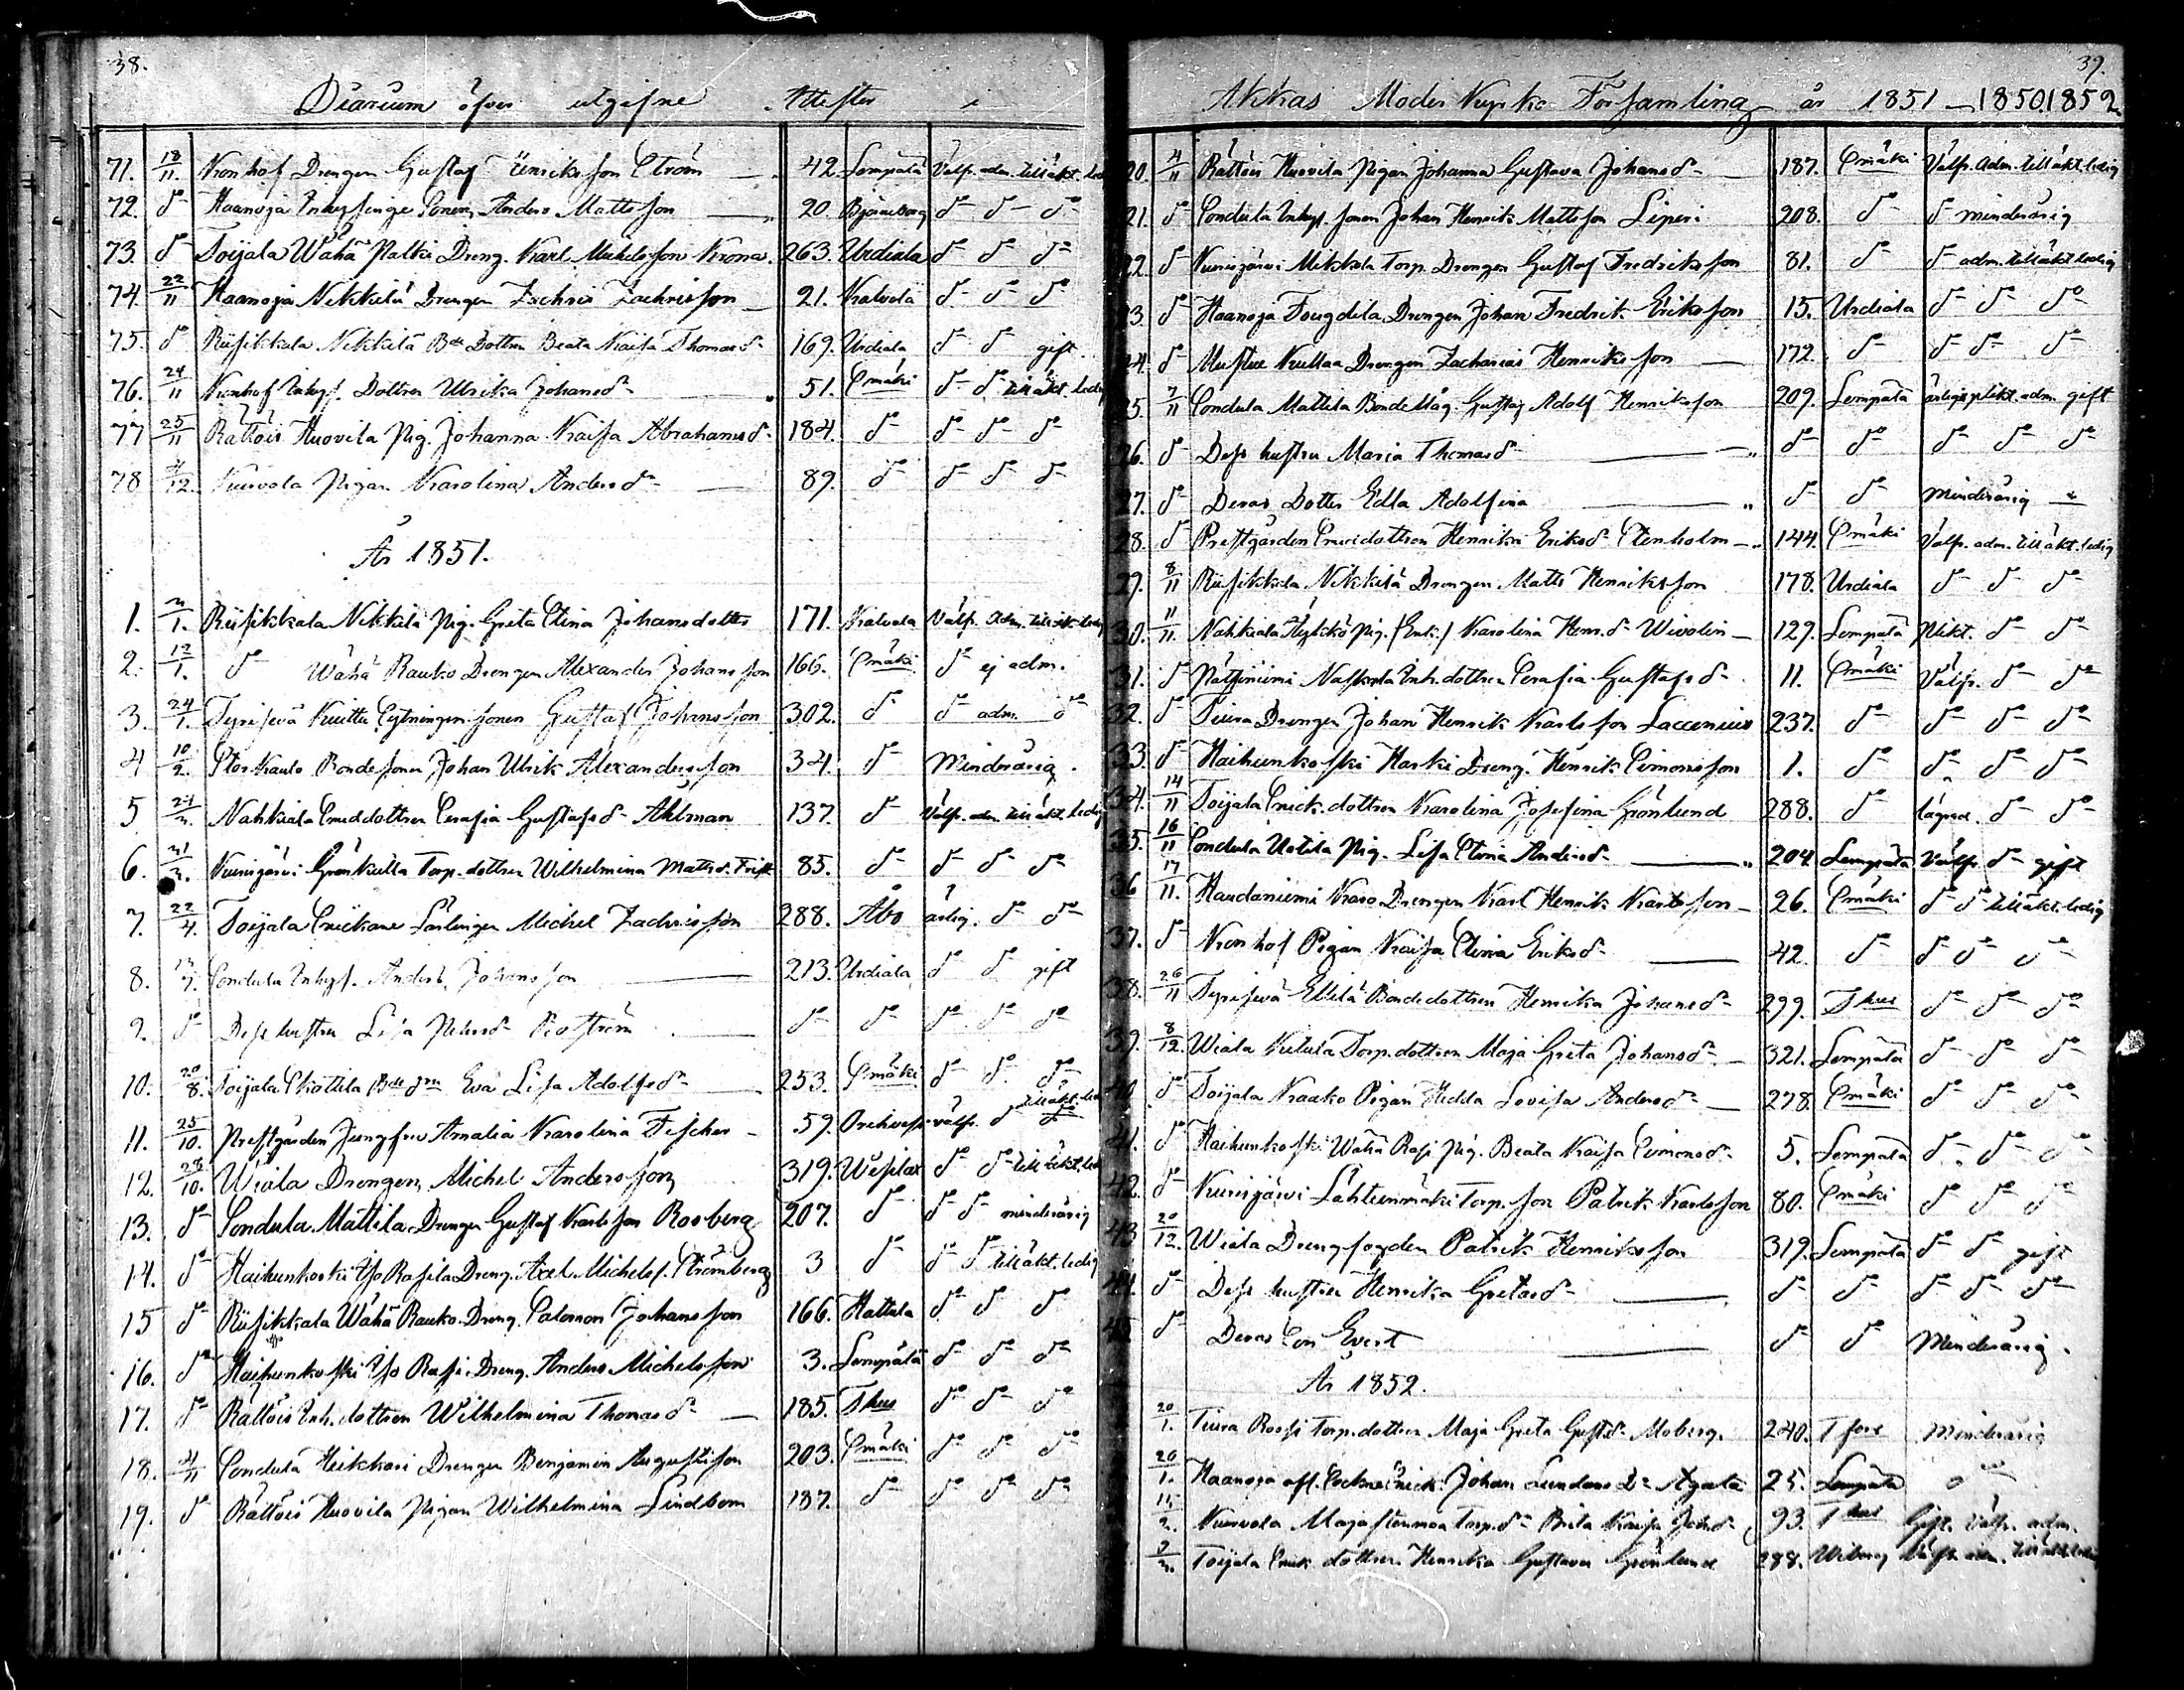 38.
Diarium öfver utgifne Attester i
71. 18/11. Kronhof Drengen Gustaf Henriksson Ström 42. Lempälä Välfr. adm. till äkt. led
72. do Haanoja Inhysinge Sonen Anders Mattsson 20. Björneborg do do do
73. do Toijala Wähä Matki Dreng. Karl Mickelsson Krona. 263. Urdiala do do do
74. 22/11 Haanoja Nikkilä Drengen Zachris Zachrisson 21. Kalvola do do do
75. do Riisikkala Nikkilä Bde Dottren Beata Kaisa Thomasdr 169. Urdiala do do gift.
76. 24/11 Kronhof Inhys. Dottren Ulrika Johansdr 51. Smäki do do till äkt. ledig
77 25/11 Rättöis Huovila Pig. Johanna Kaisa Abrahamsdr 184. do do do do
78 4/12. Kurvola Pigan Karolina Andersdr 89. do do do do
År 1851.
1. 3/1. Riisikkala Nikkilä Pig. Greta Stina Johansdotter 171. Kalvola Välfr. adm. till äkt. ledig
2. 12/1. do Wähä Rauko Drengen Alexander Johansson 166. Smäki do ej adm.
3. 24/1. Tyrisevä Kuittu Sytningm. sonen Gustaf Johansson 302. do do adm. do
4 10/2. Stor Kaulo Bondesonen Johan Ulrik Alexandersson 34. do Minderårig.
5 21/3. Nahkiala Sneddottren Serafia Gustafsdr Ahlman 137. do Välfr. adm. till äkt. ledig
6. 31/3. Kurisjärvi Grönkulla Torp. dottren Wilhelmina Mattsdr Frisk 85. do do do do
7. 22/4. Toijala Snickare Lärlingen Michel Zachrisson 288. Åbo ärlig. do do
8. Sondula Inhys. Anders Johansson 213. Urdiala do do gift
9. do Dess hustru Lisa do do do do do
10. 20/8. Toijala Skottila Bde dren Eva Lisa Adolfsdr 253. Smäki do do do
11. 25/10. Prestgården Jungfru Amalia Karolina Fischer 59. Orihvesi välfr. do till äkt. led
12. 28/10. Wiala Drengen Michel Andersson 319. Wesilax do do till äkt. led
13. do Sondula Mattila Drengen Gustaf Karlsson Rosberg 207. do do do minderårig
14. do Haihunkoski Iso Rasila Dreng. Axel Michelss. Strömberg 3 do do do till äkt. ledig
15 do Riisikkala Wähä Rauko Dreng. Salomon Johansson 166. Hattula do do do
16. do Haihunkoski Iso Rassi Dreng. Anders Michelsson 3. Lempälä do do do
17. do Rättöis Inh. dottren Wilhelmina Thomasdr 185. Thus do do do
18. 4/11 Sondula Heikkari Drengen Benjamin Augustsson 203. Smäki do do do
19. do Rättöis Huovila Pigan Wilhelmina Lindbom 187. do do do do
39.
Akkas Moder Kyrko Församling år 1851 - 1850. 1852
20. 4/11 Rättöis Huovila Pigan Johanna Gustava Johansdr 187. Smäki Välfr. adm. till äkt. ledig
21. do Sondula Inhys. sonen Johan Henrik Mattsson Liperi 208. do do minderårig
22. do Kurisjärvi Mikkola Torp. Drengen Gustaf Fredriksson 81. do do adm. till äkt. ledig
23. do Haanoja Fougdila Drengen Johan Fredrik Eriksson 15. Urdiala do do do
24. do Mustue Kullaa Drengen Zacharias Henriksson 172. do do do do
25. 7/11 Sondula Mattila Bonde Måg. Gustaf Adolf Henriksson 209. Lempälä adm. gift
26. do Dess hustru Maria Thomasdr do do do do do
27. do Deras Dotter Edla Adolfina do do Minderårig
28. do Prestgården Sneddottren Henrika Eriksdr Stenholm 144. Smäki Välfr. adm. till äkt. ledig
29. 8/11 Riisikkala Nikkilä Drengen Matts Henriksson 178. Urdiala do do do
30. 11/11. Nahkiala Hylkkö Pig. (Enk.) Karolina Henr.dr Wivolin 129. Lempälä Plikt. do do
31. do Naskala Inh. dottren Serafia Gustafsdr 11. Smäki Välfr. do do
32. do Tiura Drengen Johan Henrik Karlsson Laccenius 237. do do do do
33. do Haihunkoski Harki Dreng. Henrik Simonsson 1. do do do do
34. 14/11 Toijala Snick. dottren Karolina Josefina Grönlund 288. do do do
35. 16/11 Sondula Uotila Pig. Lisa Stina Andersdr 204 Lempälä Välfr. do gift
36 17/11. Haudaniemi Karo Drengen Karl Henrik Karlsson 26. Smäki do do till äkt. ledig
37. do Kronhof Pigan Kaisa Stina Eriksdr 42. do do do do
38. 26/11 Tyrisevä Ellilä Bondedottren Henrika Johansdr 299. Thus do do do
39. 8/12. Wiala Kutula Torp. dottren Maja Greta Johansdr 321. Lempälä do do do
40. do Toijala Kaako Pigan Hedda Lovisa Andersdr 278. Smäki do do do
41. do Haihunkoski Wähä Rasi Pig. Beata Kaisa Simonsdr 5. Lempälä do do do
42. do Kurisjärvi Lähteenmäki Torp. son Patrik Karlsson 80. Smäki do do do
43 20/12. Wiala Drengfogden Patrik Henriksson 319. Lempälä do do gift
44. do Dess hustru Henrika Gretasdr do do do do do
45. do Deras Son Evert do do Minderårig.
År 1852.
20/1. Tiura Rossi Torp. dottren Maja Greta Gustdr Moberg. 240. Tfors Minderårig
26/1. Haanoja afl. Sockne Snick. Johan Lundans Dr Agata 25. Lempälä
2. Kurvola Torp. dr Brita Kaisa Joh.dr 93. Thus Gift. Välfr. adm.
9/3. Toijala Snick dottren Henrika Gustava Grönlund 288. Wiborg Välfr. adm. till äkt. ledig